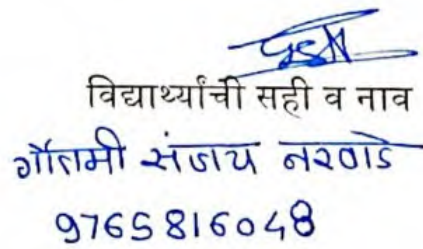 विद्यार्थ्यांची सही व नाव
गौतमी संजय नरवाडे
9765816048